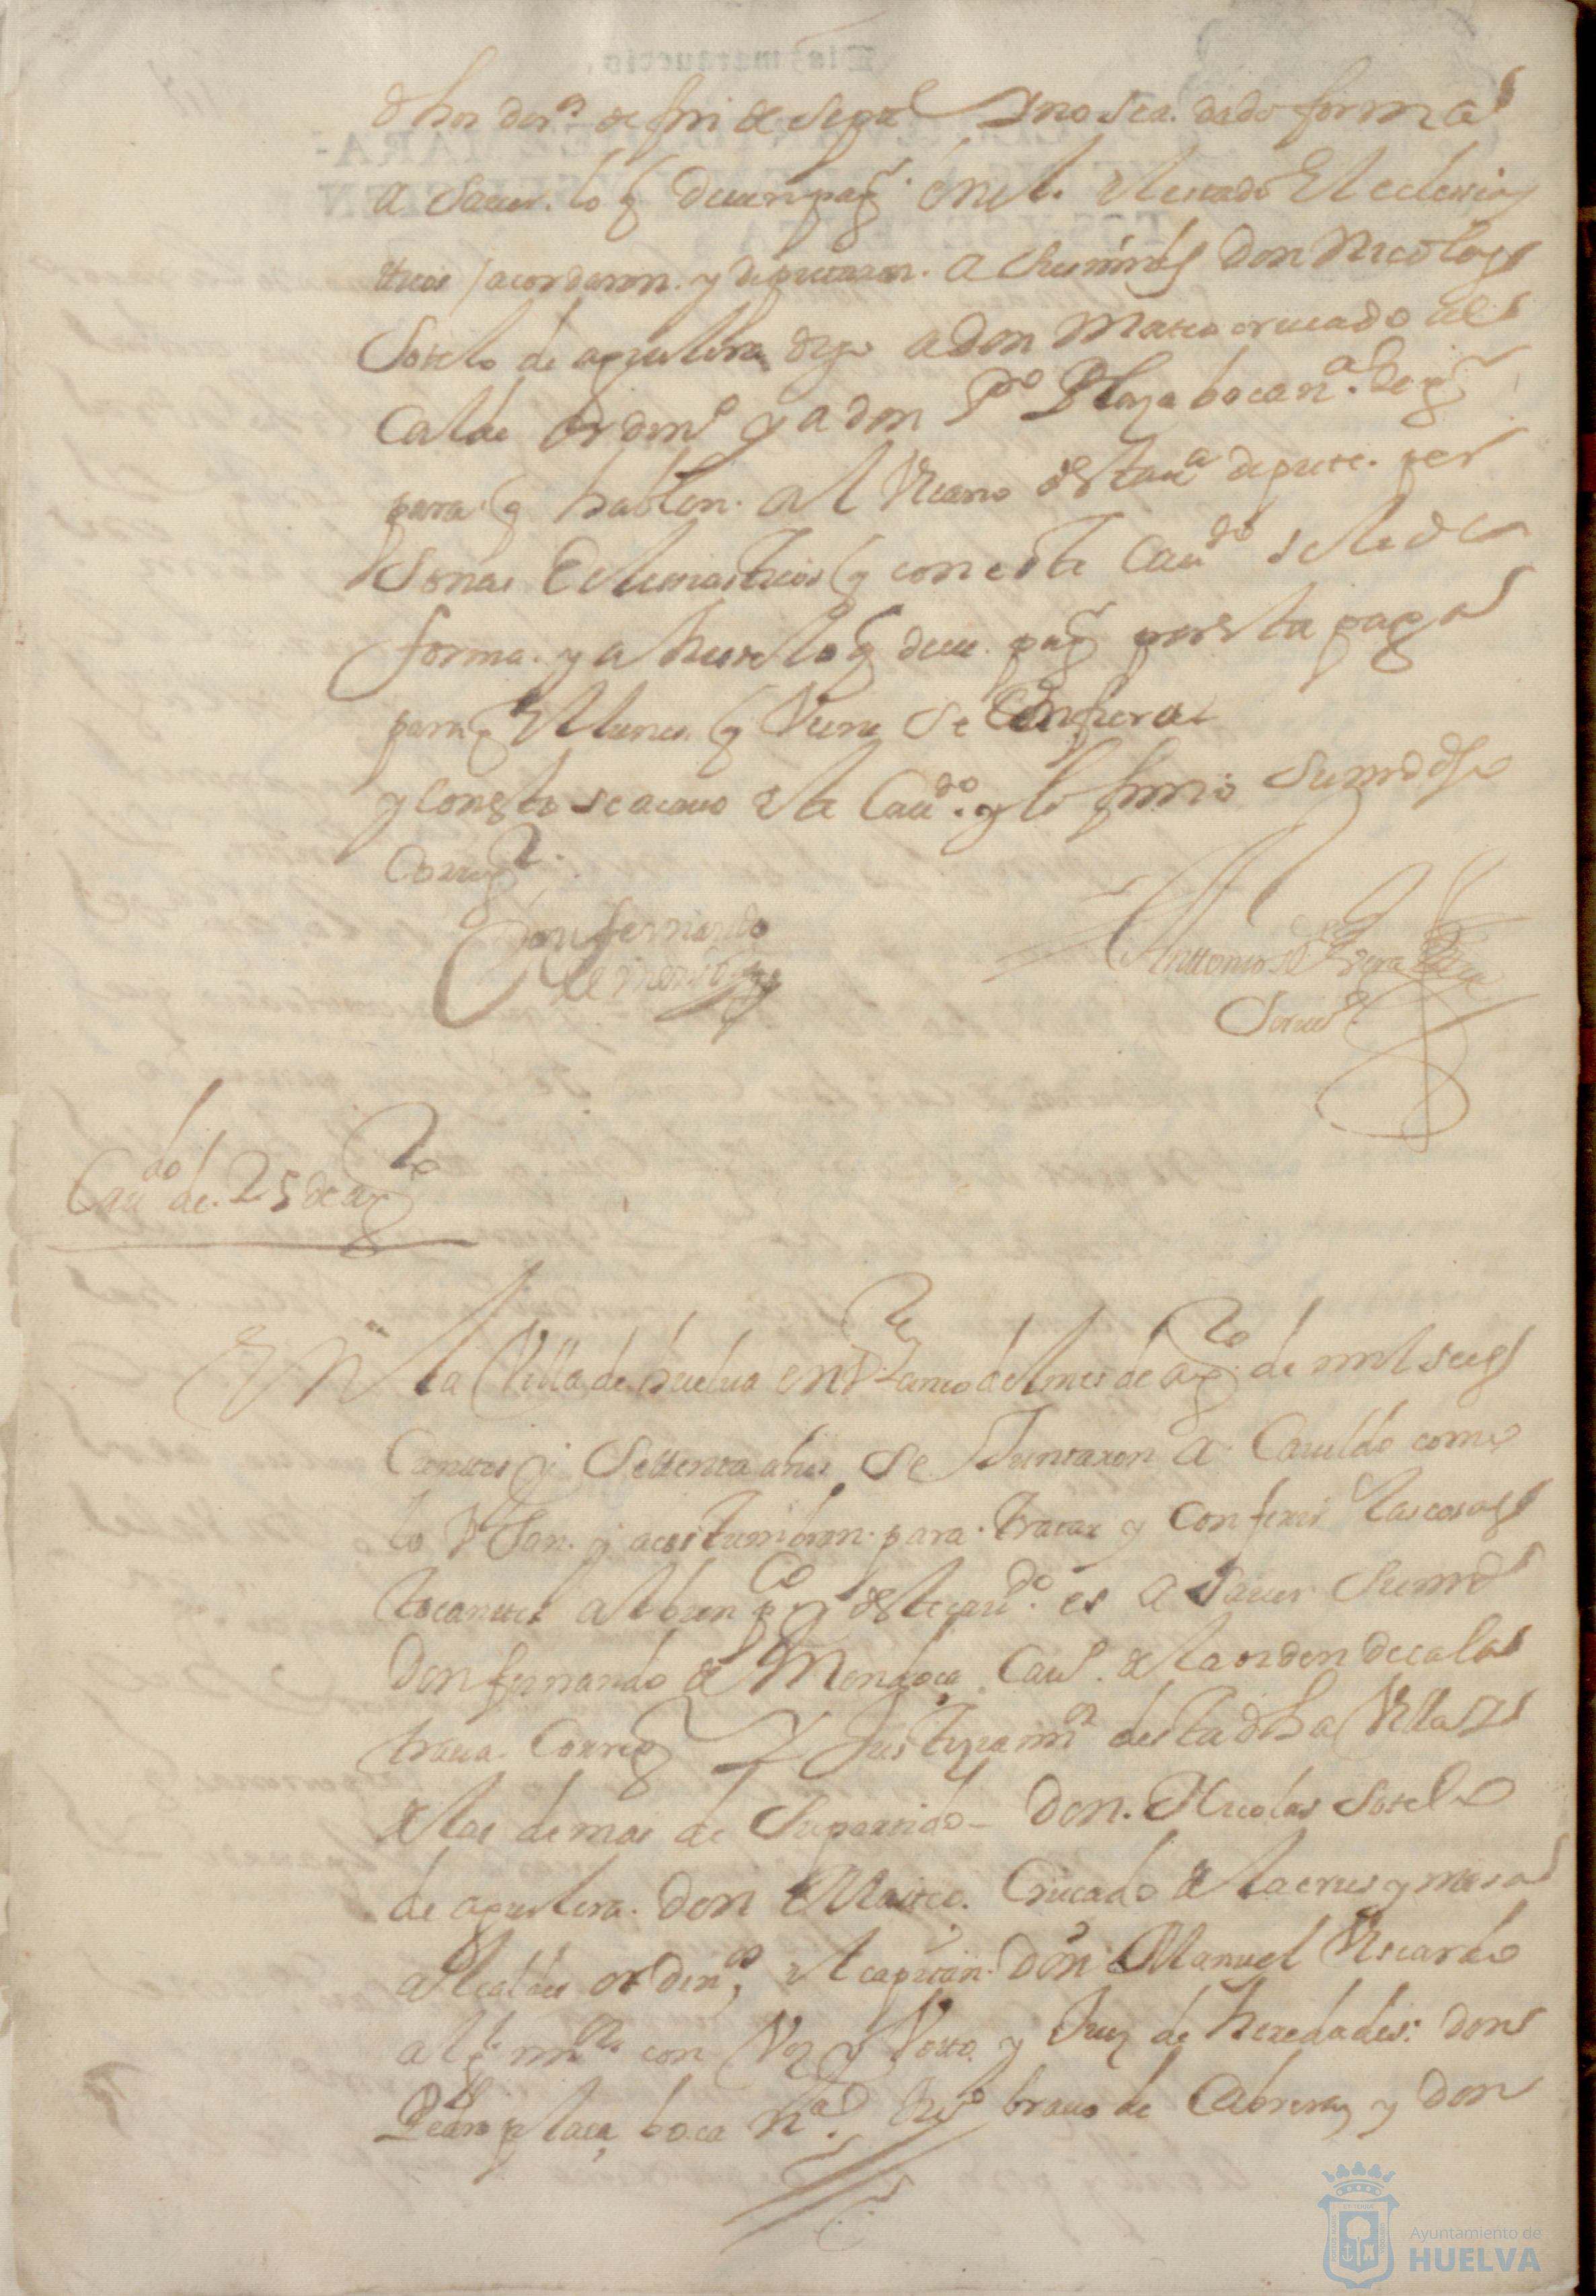 dhos dos de fin de sepre y no sea dado forma
a Sauer lo q deuen pagr en el estado Eclesias
ticos acordaron y diputaron a sus mrds Don Nicolas
Sotelo de aguilera digo a Don Mateo crucado al
Calde Ordino y a don Po Plaza bocanda
para q hablen al Vicario desta va depute per
Sonas Eclesiasticos q con este Caudo se le de
forma y a sauer lo q deue pagr por esta paga
para q el lunes q Viene se Confiera
y con esto se acauo este Caudo y lo firmo Su mrd dho
Corregr
Don fernando
de mendoça
Antonio de
Caudo de 25 de ago
En la Villa de huelua en Vte cinco del mes de ago de mil seis
Cientos y Settenta años se Juntaron a Cauildo como
lo Vsan y acostumbran para tratar y Conferir las cosas
tocantes al bien pco deste caudo es a sauer Su mrd
Don fernando de Mendoça Cauo de la orden de cala
traua Corregr y Justa mr desta dha Villa y
de las demas de Su partido Don Nicolas Sotelo
de aguilera Don Mateo Crucado de la crus y mesa
alcaldes ordinos el capitan Don Manuel Ricardo
algl mr con Voz y Voto y Juez de heredades Don
Pedro plaça bocanda frco brauo de Cabrera y Don
Ayuntamiento de
HUELVA